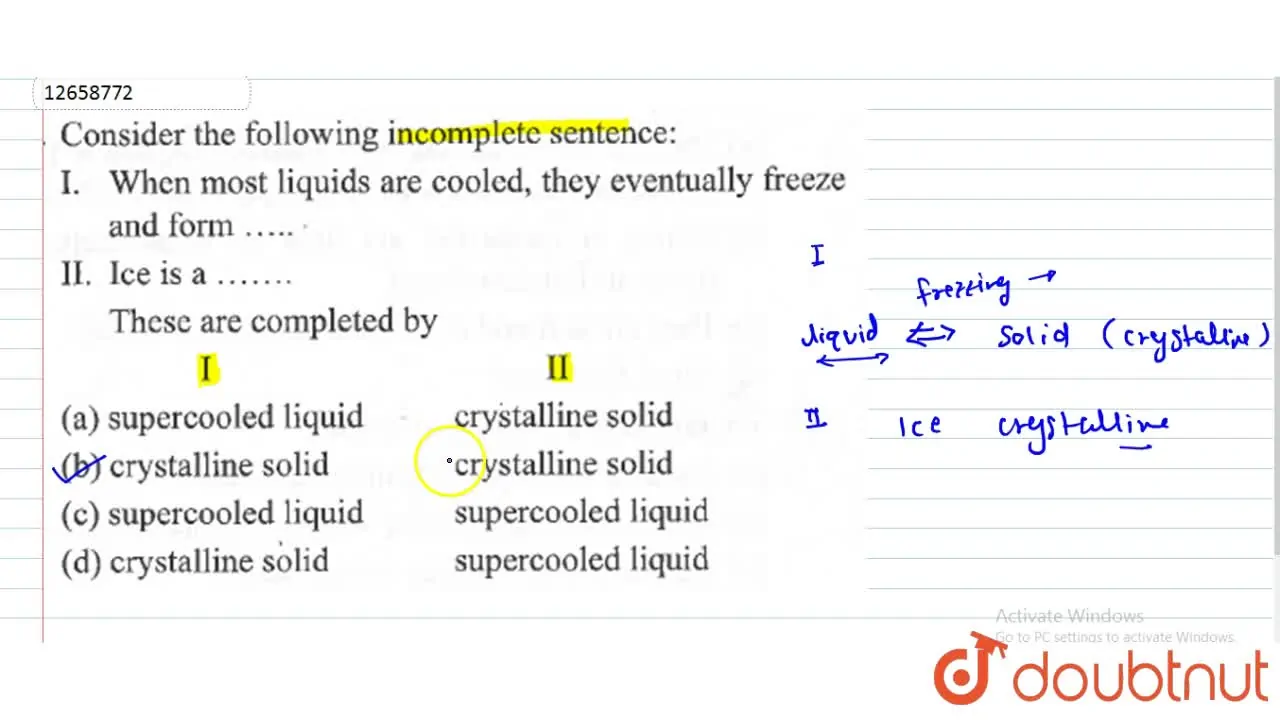 12658772
Consider the following incomplete sentence:
I. When most liquids are cooled, they eventually freeze
and form …..
II. Ice is a …….
These are completed by
I II
(a) supercooled liquid crystalline solid
(b) crystalline solid crystalline solid
(c) supercooled liquid supercooled liquid
(d) crystalline solid supercooled liquid
I
freezing →
liquid ⇔ solid (crystalline)
II Ice crystalline
Activate Windows
Go to PC settings to activate Windows.
doubtnut